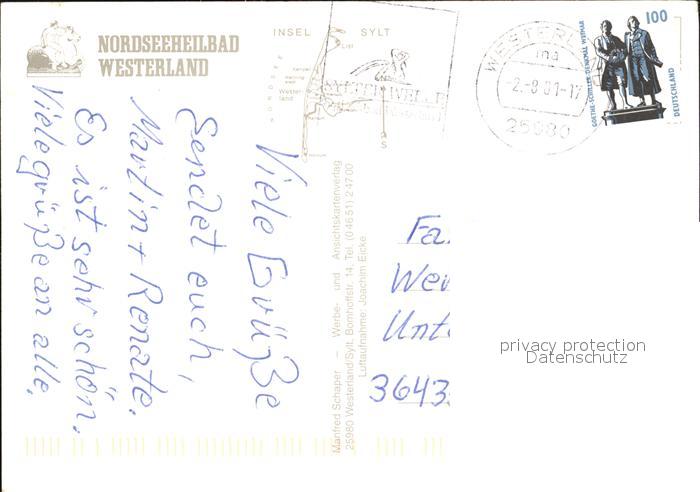 NORDSEEHEILBAD
WESTERLAND
INSEL SYLT
List
NORDSEE
Kampen
Wester-
land
S
SYLTER WELLE
WESTERL
ma
-2.-8.01-17
25980
100
GOETHE-SCHILLER-DENKMAL WEIMAR
DEUTSCHLAND
Viele Grüße
sendet euch,
Martin + Renate.
Es ist sehr schön.
Vielegrüße an alle.
Manfred Schaper – Werbe- und Ansichtskartenverlag
25980 Westerland/Sylt, Bomhoffstr. 14, Tel. (0 46 51) 2 47 00
Luftaufnahme: Joachim Eicke
Fa
We
Unt
3643
privacy protection
Datenschutz